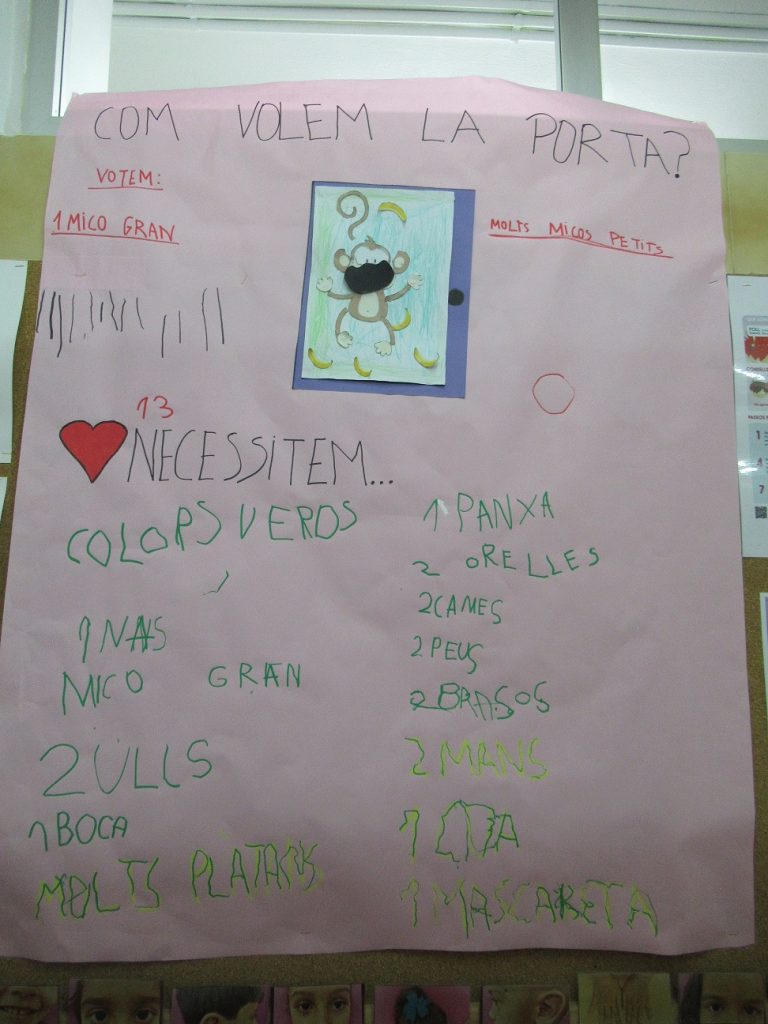 COM VOLEM LA PORTA?
VOTEM:
1 MICO GRAN
MOLTS MICOS PETITS
13
NECESSITEM...
COLORS VERDS
1 NAS
MICO GRAN
2 ULLS
1 BOCA
MOLTS PLÀTANS
1 PANXA
2 ORELLES
2 CAMES
2 PEUS
2 BRASOS
2 MANS
1 CUA
1 MASCARETA